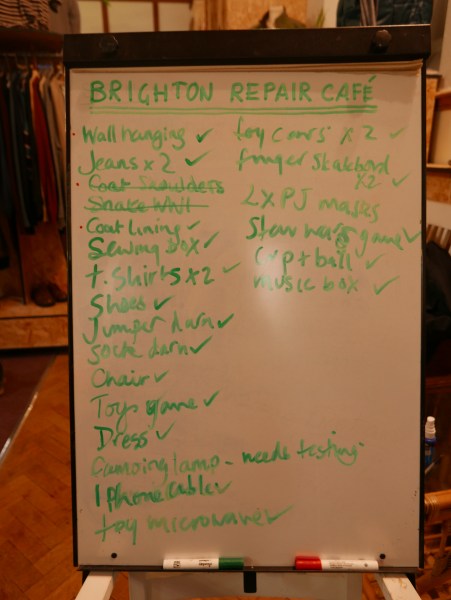 BRIGHTON REPAIR CAFÉ
Wall hanging ✓
Jeans x 2 ✓
Coat Shoulders
Snake Wall
Coat lining ✓
Sewing box ✓
t. Shirts x 2 ✓
Shoes ✓
Jumper darn ✓
Socks darn ✓
Chair ✓
Toys game ✓
Dress ✓
Camping lamp - needs testing
I Phone Cable ✓
toy microwave ✓
toy cars x 2 ✓
finger Skatebord
x2 ✓
2 x PJ masks
Star wars game ✓
Cup + ball ✓
music box ✓